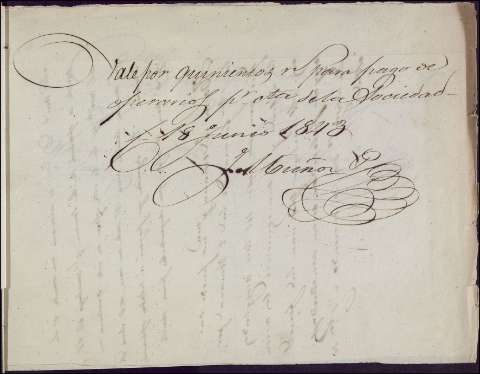 Vale por quinientos rs para pago de
operarios pr cta de la Sociedad
18 Junio 1843
Muñoz